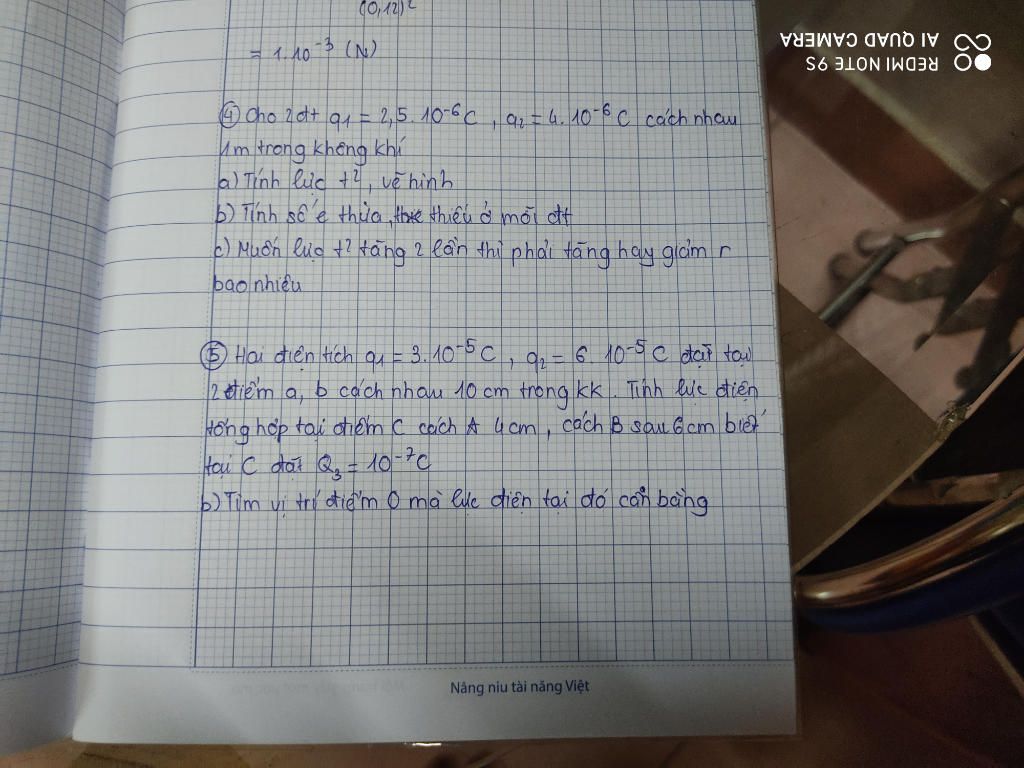 (0,12)²
= 1.10⁻³ (N)
④ Cho 2đt q₁ = 2,5.10⁻⁶C , q₂ = 4.10⁻⁶C cách nhau
1m trong không khí
a) Tính lực t², vẽ hình
b) Tính số e thừa, thiếu ở mỗi đt
c) Muốn lực t² tăng 2 lần thì phải tăng hay giảm r
bao nhiêu
⑤ Hai điện tích q₁ = 3.10⁻⁵C , q₂ = 6.10⁻⁵C đặt tại
2 điểm a, b cách nhau 10 cm trong kk. Tính lực điện
tổng hợp tại điểm C cách A 4cm, cách B sau 6cm biết
tại C đặt Q₃ = 10⁻⁷C
b) Tìm vị trí điểm O mà lực điện tại đó cân bằng
Nâng niu tài năng Việt
REDMI NOTE 9S
AI QUAD CAMERA